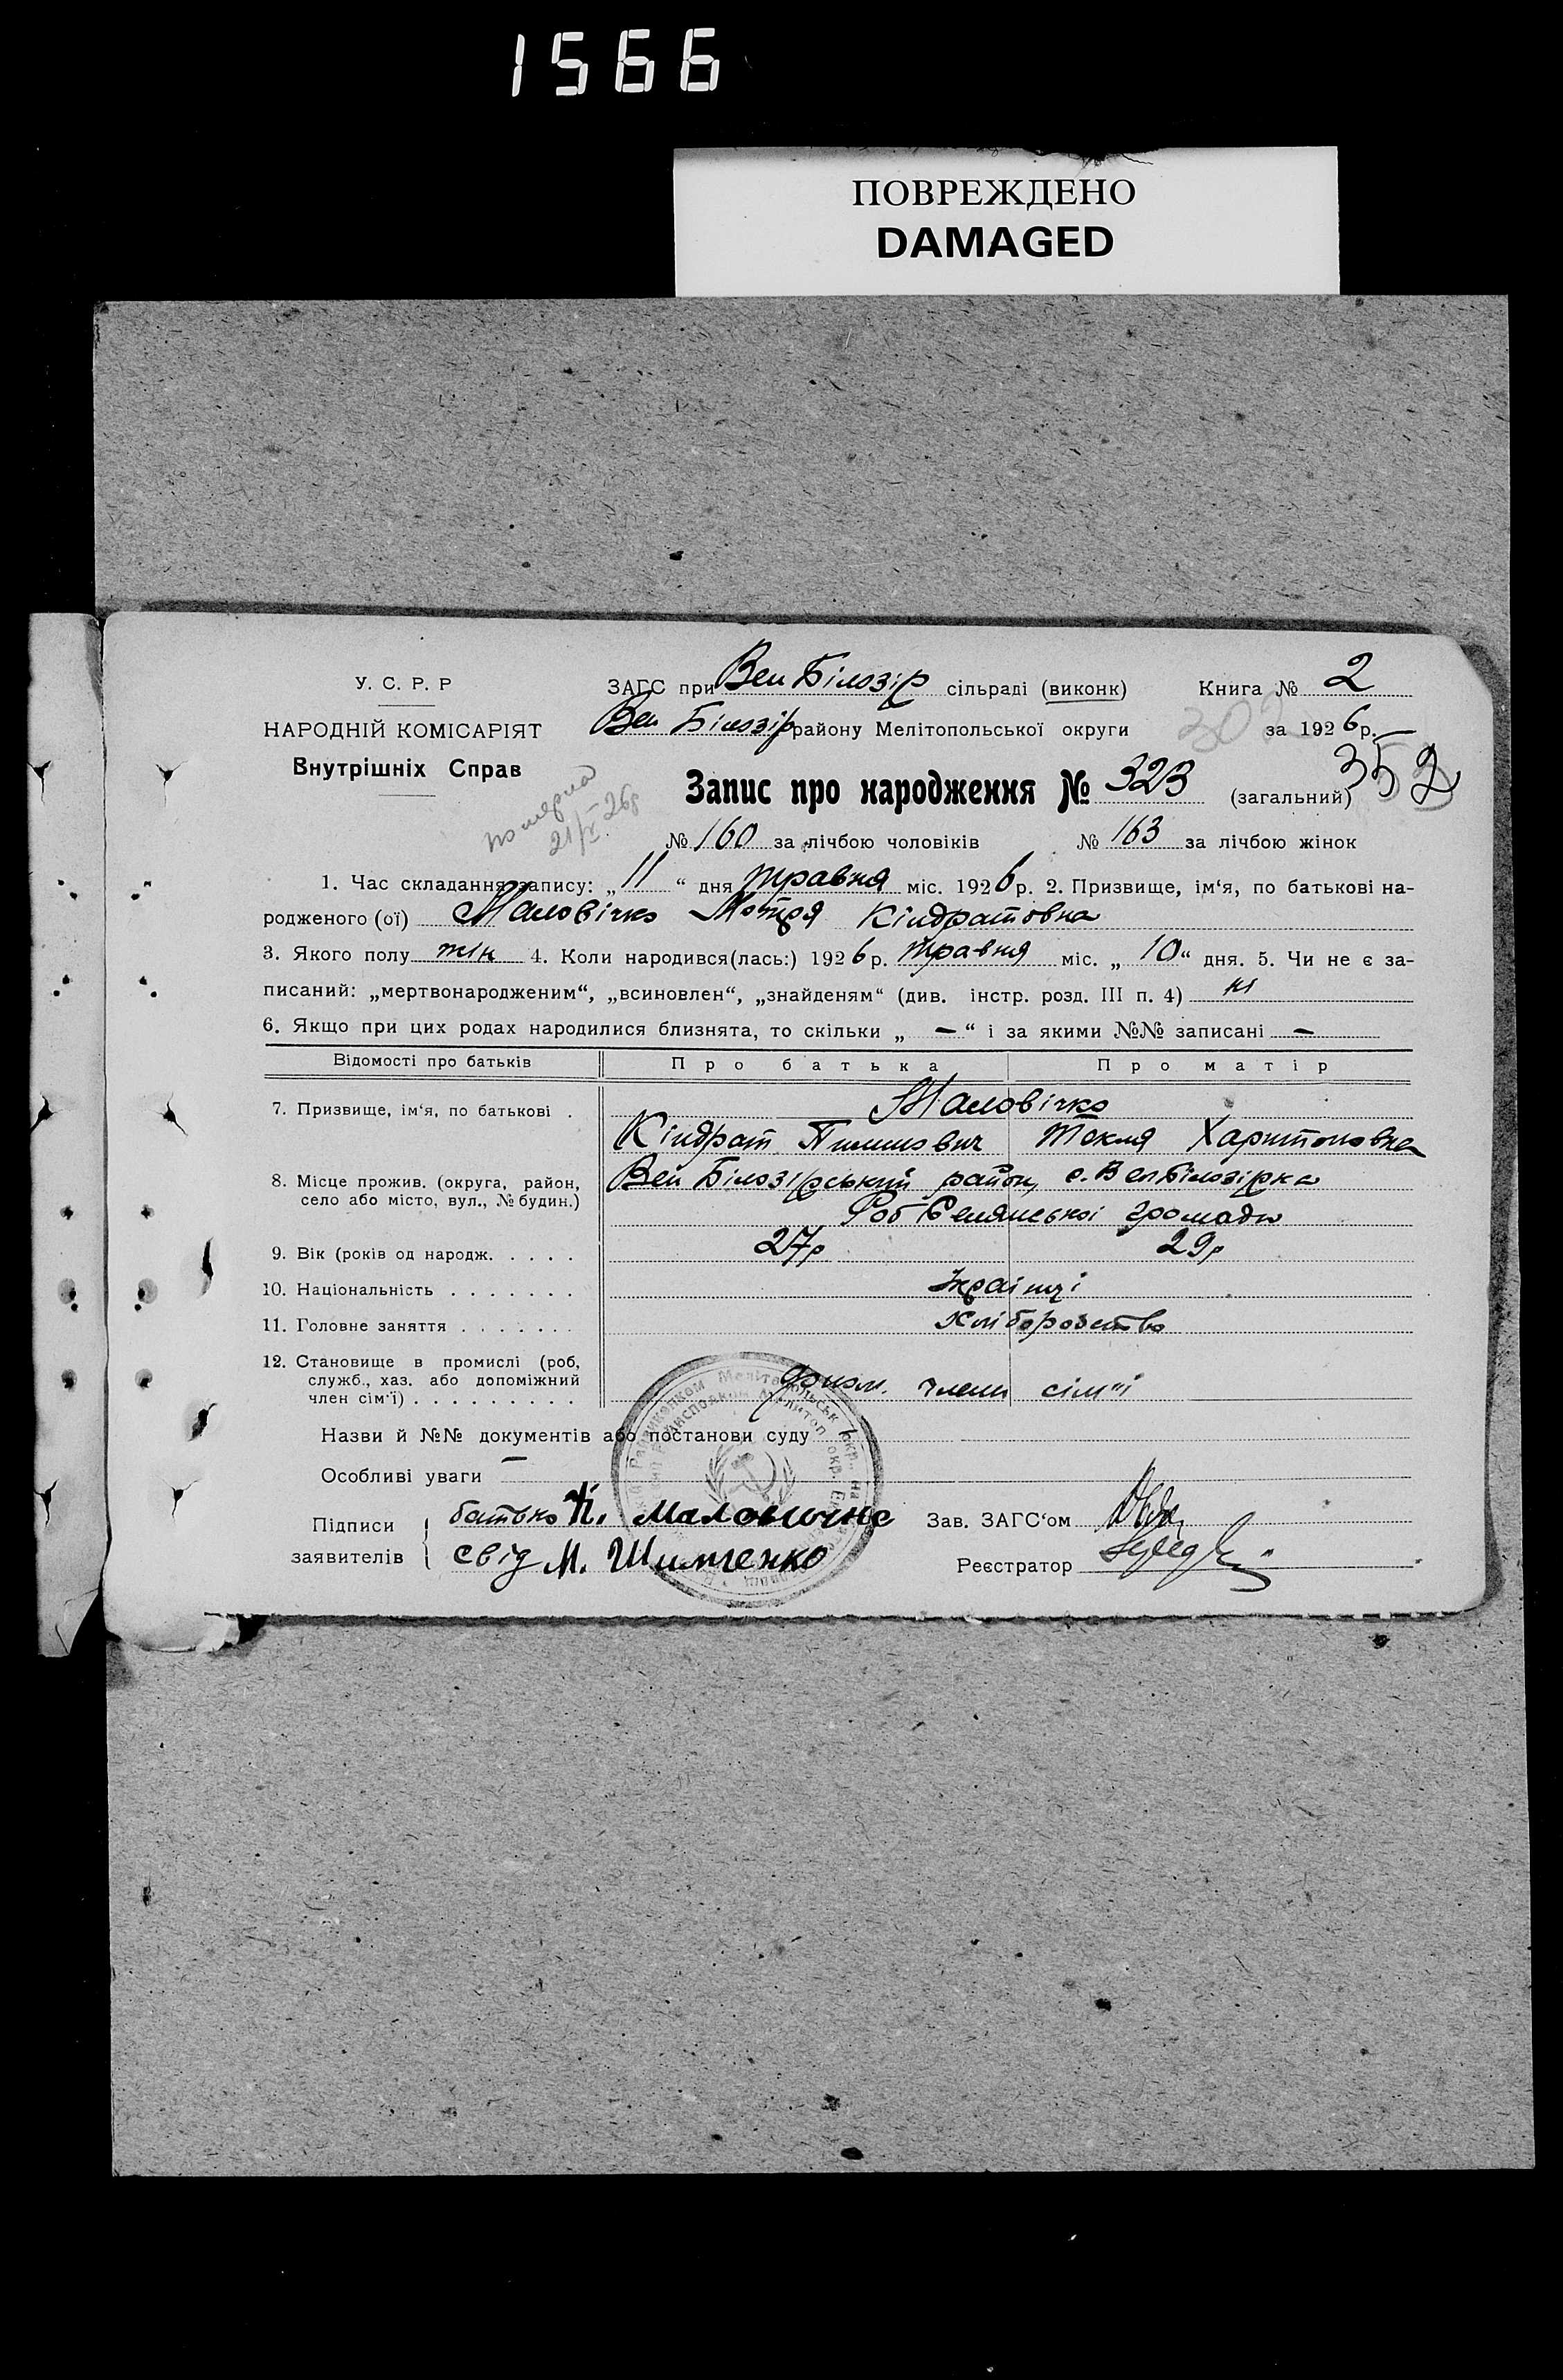 1566
ПОВРЕЖДЕНО
DAMAGED
У. С. Р. Р
НАРОДНІЙ КОМІСАРІЯТ
Внутрішніх Справ
ЗАГС при Вел Білозір сільраді (виконк)
Книга № 2
Вел Білозір району Мелітопольської округи
302
за 1926 р.
померла
21/ 26р
Запис про народження № 323 (загальний) 352
№ 160 за лічбою чоловіків № 163 за лічбою жінок
1. Час складання запису: „11“ дня травня міс. 1926 р. 2. Призвище, ім‘я, по батькові на-
родженого (ої) Маловічко Мотря Кіндратовна
3. Якого полу жін 4. Коли народився(лась:) 1926 р. травня міс. „10“ дня. 5. Чи не є за-
писаний: „мертвонародженим“, „всиновлен“, „знайденям“ (див. інстр. розд. III п. 4) ні
6. Якщо при цих родах народилися близнята, то скільки „ — “ і за якими №№ записані —
Відомості про батьків Про батька Про матір
7. Призвище, ім‘я, по батькові . Маловічко
Кіндрат Пилипович Текля Харитоновна
8. Місце прожив. (округа, район,
село або місто, вул., № будин.)
Вел Білозірський район, с. Вел Білозірка
Роб Селянської громади
9. Вік (років од народж. . . . . 27р 29р
10. Національність . . . . . . . Українці
11. Головне заняття . . . . . . . Хліборобство
12. Становище в промислі (роб,
служб., хаз. або допоміжний
член сім‘ї) . . . . . . . . . .
Допом. члени сім"ї
Назви й №№ документів або постанови суду
Особливі уваги —
Підписи
заявителів
батько К. Маловичко
свід М. Шимченко
Зав. ЗАГС‘ом
Реєстратор